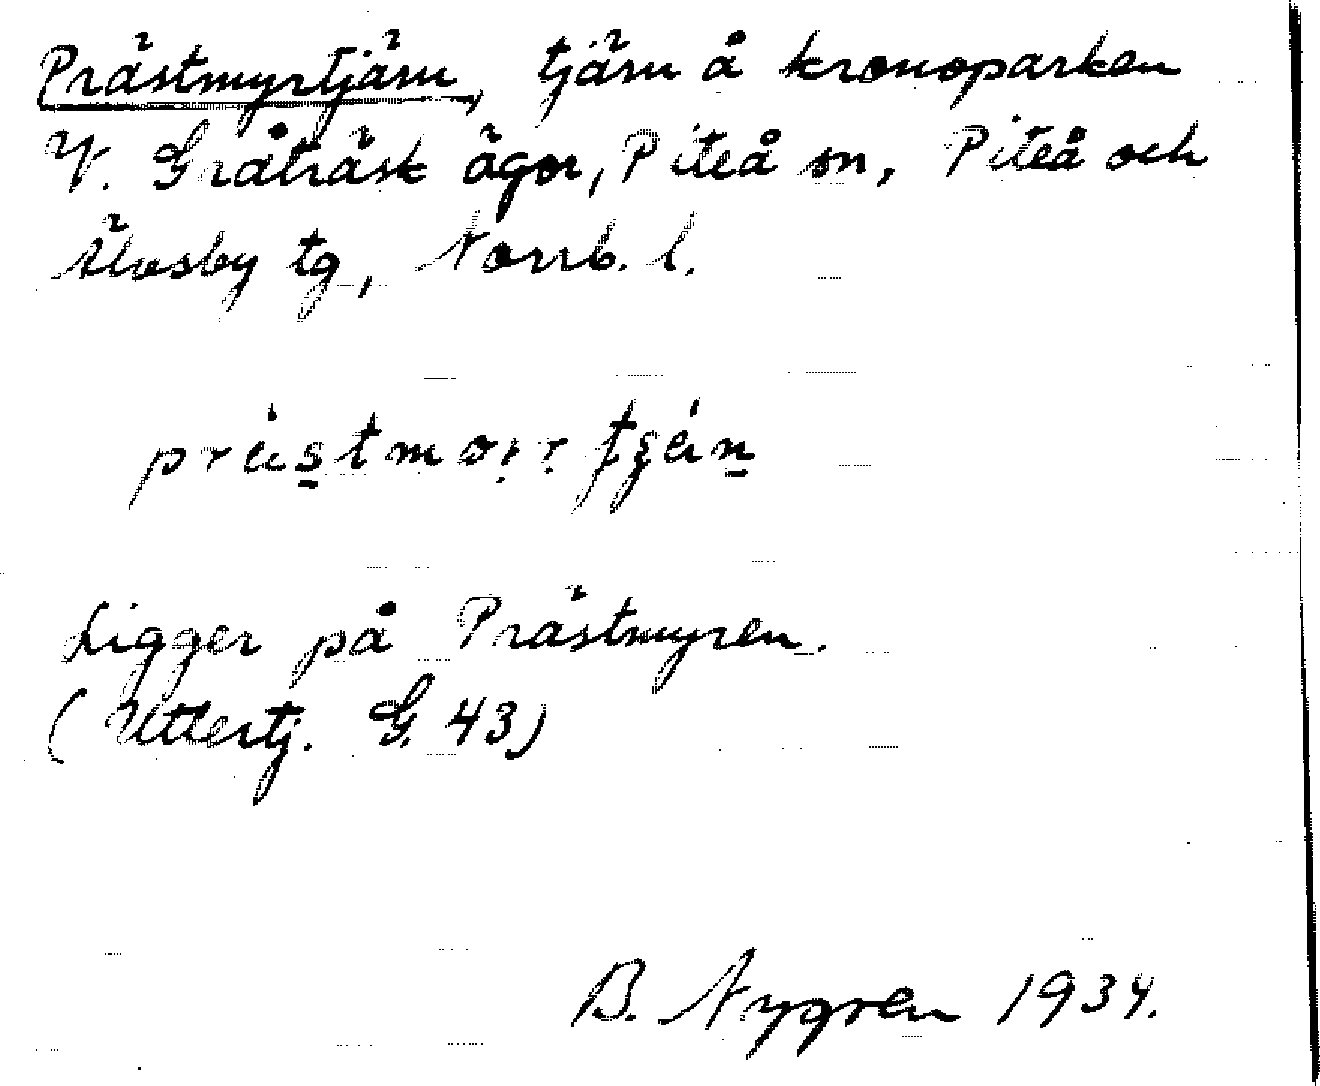 Prästmyrtjärn, tjärn å kronoparken
V. Gråträsk ägor, Piteå sn, Piteå och
Älvsby tg, Norrb. l.
Ligger på Prästmyren.
(Uttertj. G. 43)
B. Nygren 1934.